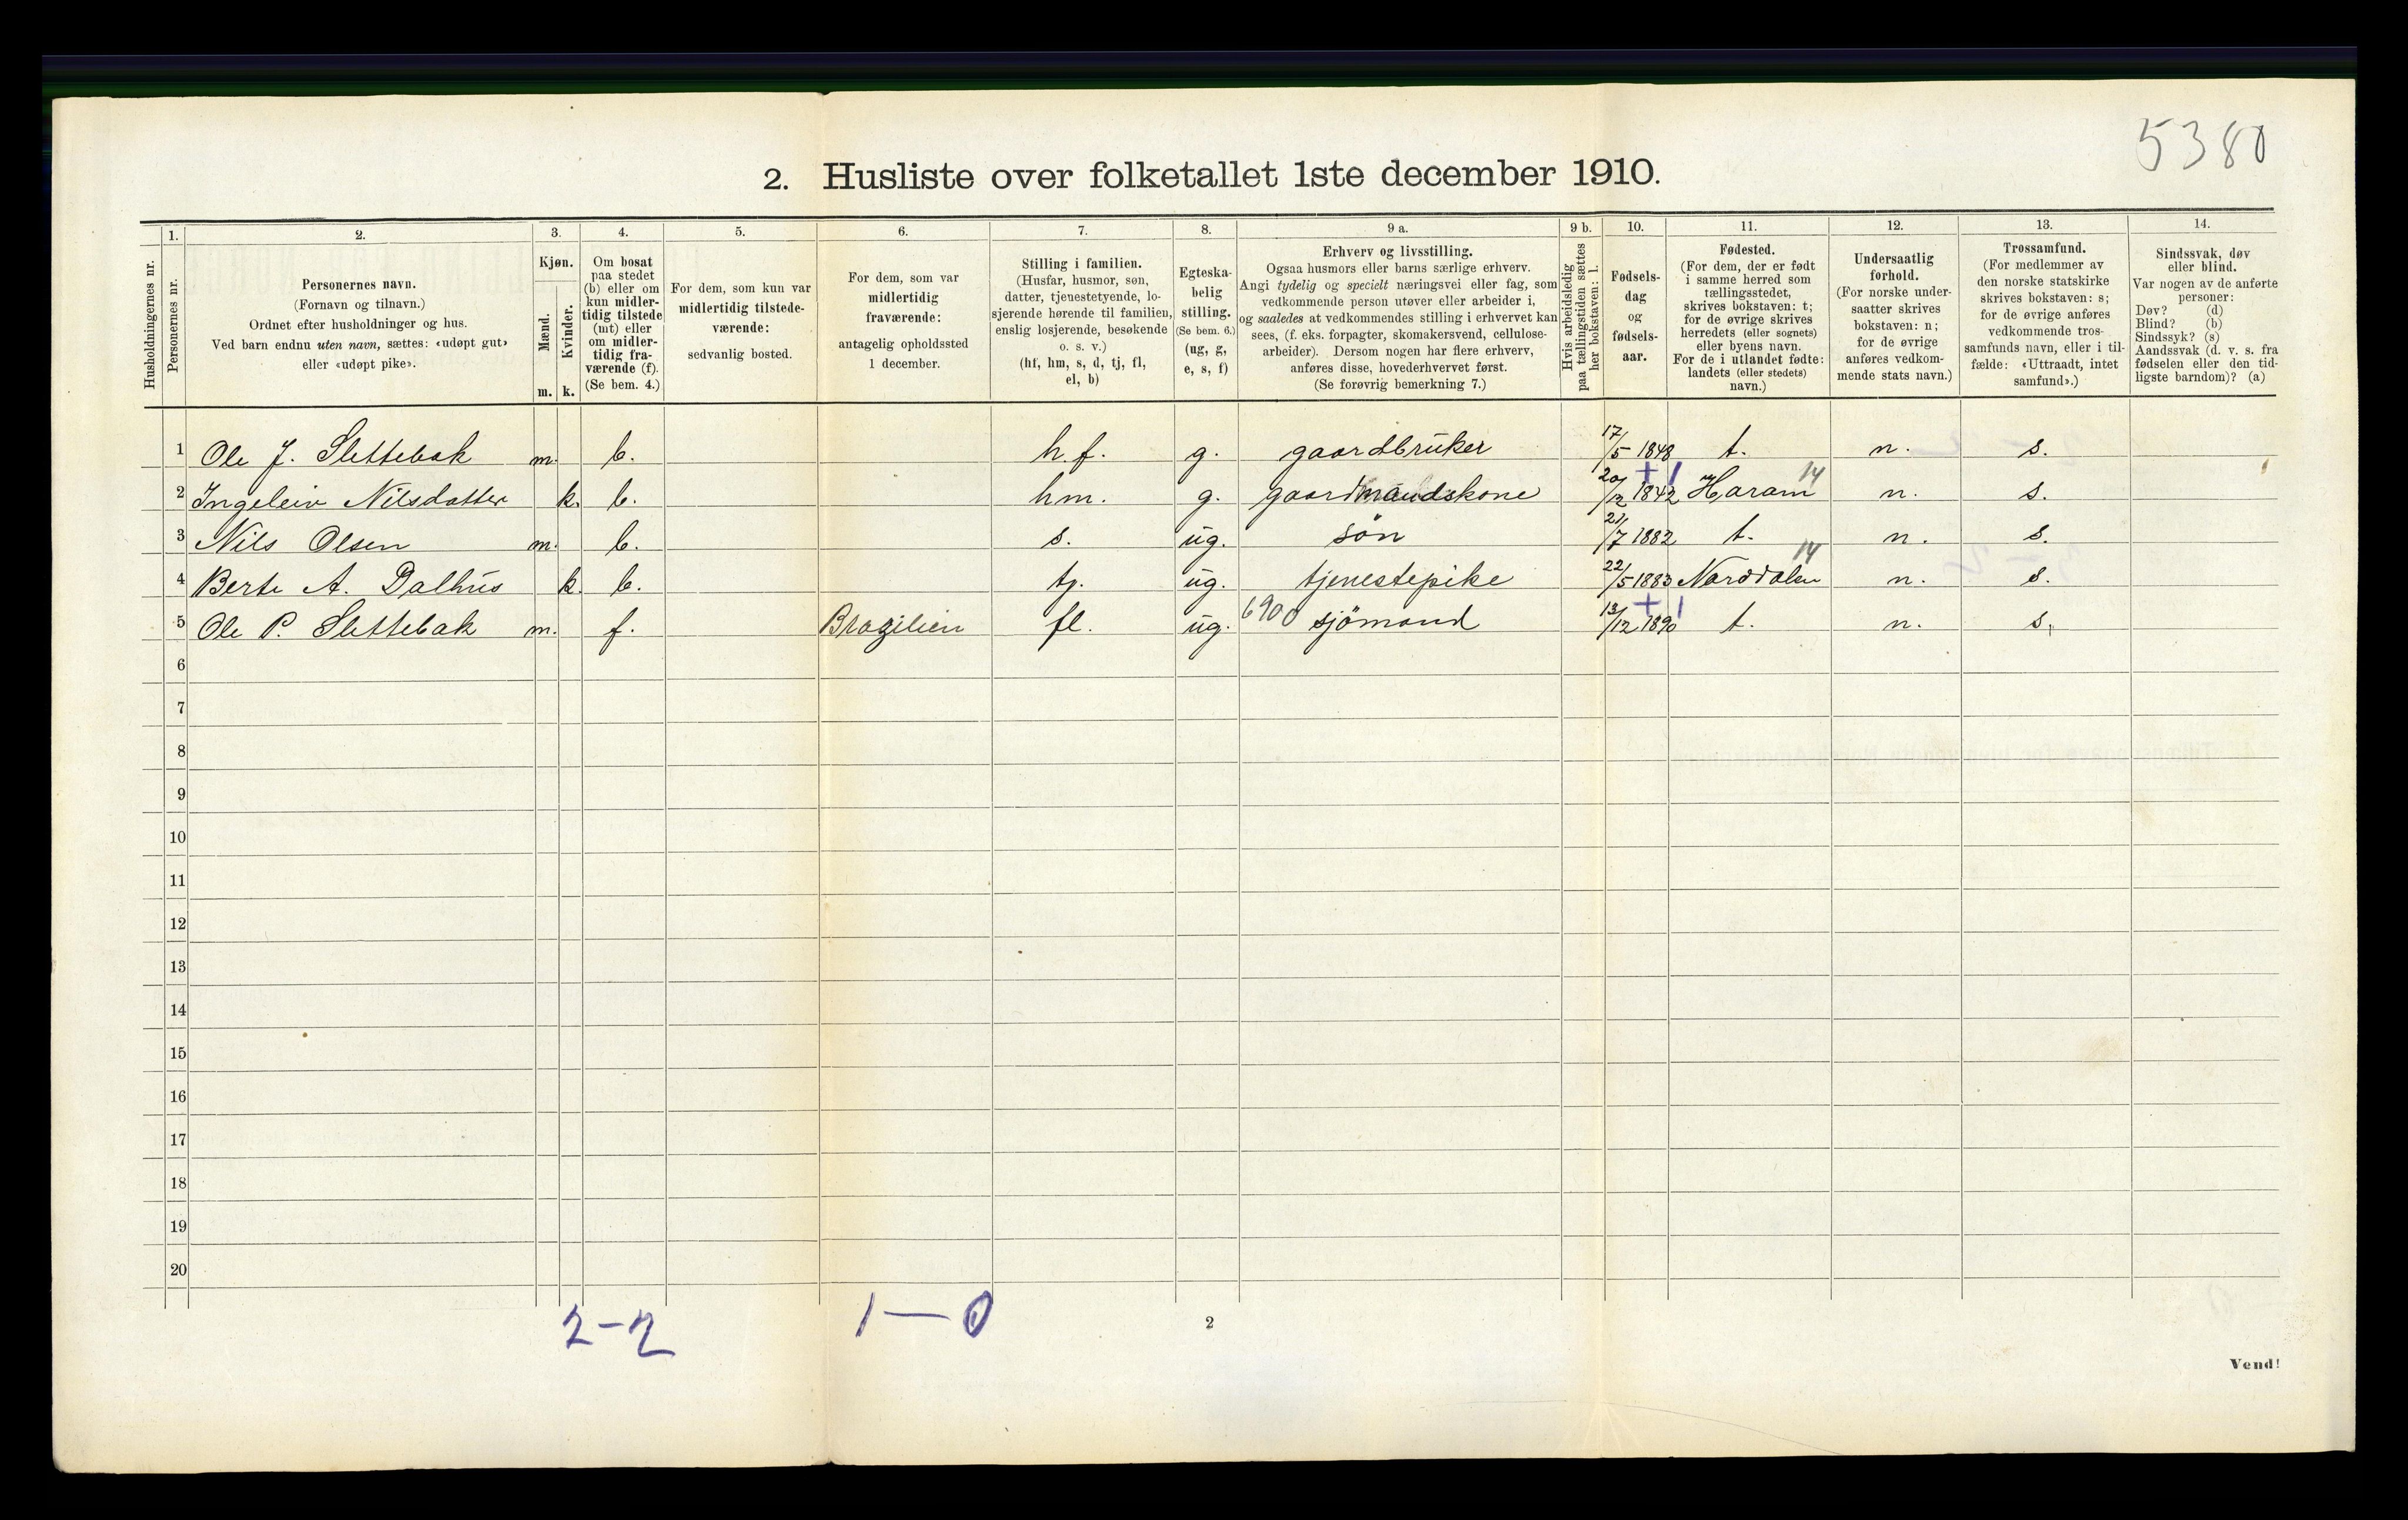 5380
2. Husliste over folketallet 1ste december 1910.
Husholdningernes nr.
1. Personernes nr.
2. Personernes navn.
(Fornavn og tilnavn.)
Ordnet efter husholdninger og hus.
Ved barn endnu uten navn, sættes: «udøpt gut»
eller «udøpt pike».
3. Kjøn.
Mænd. m.
Kvinder. k.
4. Om bosat
paa stedet
(b) eller om
kun midler-
tidig tilstede
(mt) eller
om midler-
tidig fra-
værende (f).
(Se bem. 4.)
5. For dem, som kun var
midlertidig tilstede-
værende:
sedvanlig bosted.
6. For dem, som var
midlertidig
fraværende:
antagelig opholdssted
1 december.
7. Stilling i familien.
(Husfar, husmor, søn,
datter, tjenestetyende, lo-
sjerende hørende til familien,
enslig losjerende, besøkende
o. s. v.)
(hf, hm, s, d, tj, fl,
el, b)
8. Egteska-
belig
stilling.
(Se bem. 6.)
(ug, g,
e, s, f)
9 a. Erhverv og livsstilling.
Ogsaa husmors eller barns særlige erhverv.
Angi tydelig og specielt næringsvei eller fag, som
vedkommende person utøver eller arbeider i,
og saaledes at vedkommendes stilling i erhvervet kan
sees, (f. eks. forpagter, skomakersvend, cellulose-
arbeider). Dersom nogen har flere erhverv,
anføres disse, hovederhvervet først.
(Se forøvrig bemerkning 7.)
9 b. Hvis arbeidsledig
paa tællingstiden sættes
her bokstaven: l.
10. Fødsels-
dag
og
fødsels-
aar.
11. Fødested.
(For dem, der er født
i samme herred som
tællingsstedet,
skrives bokstaven: t;
for de øvrige skrives
herredets (eller sognets)
eller byens navn.
For de i utlandet fødte:
landets (eller stedets)
navn.)
12. Undersaatlig
forhold.
(For norske under-
saatter skrives
bokstaven: n;
for de øvrige
anføres vedkom-
mende stats navn.)
13. Trossamfund.
(For medlemmer av
den norske statskirke
skrives bokstaven: s;
for de øvrige anføres
vedkommende tros-
samfunds navn, eller i til-
fælde: «Uttraadt, intet
samfund».)
14. Sindssvak, døv
eller blind.
Var nogen av de anførte
personer:
Døv? (d)
Blind? (b)
Sindssyk? (s)
Aandssvak (d. v. s. fra
fødselen eller den tid-
ligste barndom)? (a)
1 Ole J. Slettebak m. b. h.f. g. gaardbruker 17/5 1848 t. n. s.
2 Ingeleiv Nilsdatter k. b. hm. g. gaardmandskone 20/12 1842 Haram 14 n. s.
3 Nils Olsen m. b. s. ug. søn 21/7 1882 t. n. s.
4 Berte A. Dalhus k. b. tj. ug. tjenestepike 22/5 1883 Norddalen 14 n. s.
5 Ole P. Slettebak m. f. Brazilien fl. ug. 6900 sjömand 13/12 1890 t. n. s.
6
7
8
9
10
11
12
13
14
15
16
17
18
19
20
2-2 1-0
2
Vend!